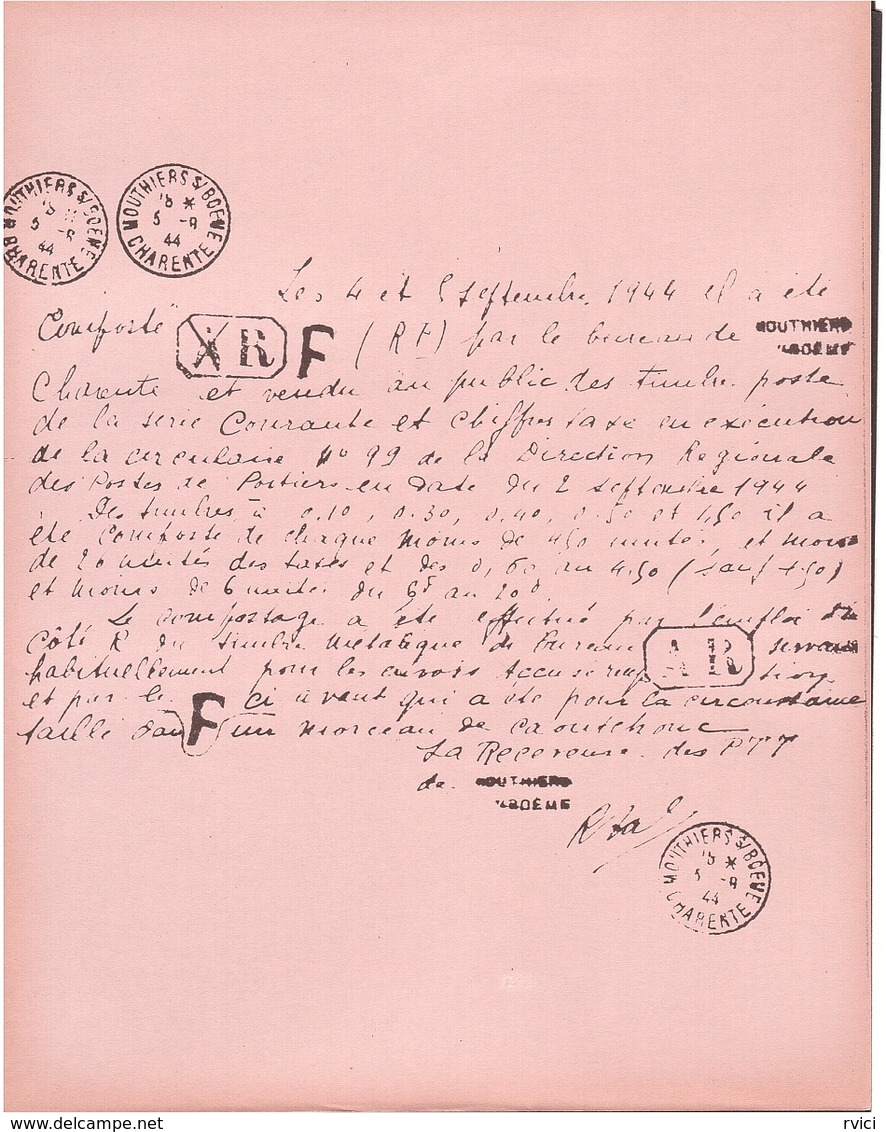 MOUTHIERS S/BOEME
18
5 -9
44
CHARENTE
MOUTHIERS S/BOEME
18 *
5 -9
44
CHARENTE
Les 4 et 5 septembre 1944 il a été
Composté " A R F (RF) par le bureau de MOUTHIERS
S/BOËME
Charente et vendu au public des timbre poste
de la serie Courante et chiffres taxe en exécution
de la circulaire N° 99 de la Direction Régionale
des Postes de Poitiers en date du 2 septembre 1944
Des timbres à 0.10, 0.30, 0.40, 0.50 et 1,50 il a
été composté de chaque moins de 450 unités, et moins
de 20 unités des taxes et des 0,60 au 4.50 (sauf 1,50)
et moins de 6 unités du 5f au 20f.
Le compostage a été effectué par l'emploi du
côté R du timbre métallique de Bureau A R servant
habituellement pour les envois Accusé
et par le F ci avant qui a été pour la circonstance
taillé dans un morceau de caoutchouc
La Receveuse des PTT
de MOUTHIERS
S/BOËME
MOUTHIERS S/BOEME
18 *
5 -9
44
CHARENTE
www.delcampe.net
rvici